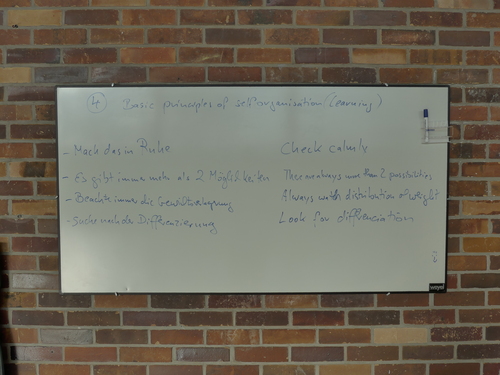 4 Basic principles of selforganisation (learning)
- Mach das in Ruhe Check calmly
- Es gibt immer mehr als 2 Möglichkeiten There are always more than 2 possibilities
- Beachte immer die Always watch distribution of weight
- Suche nach der Differenzierung Look for differenciation
weyel